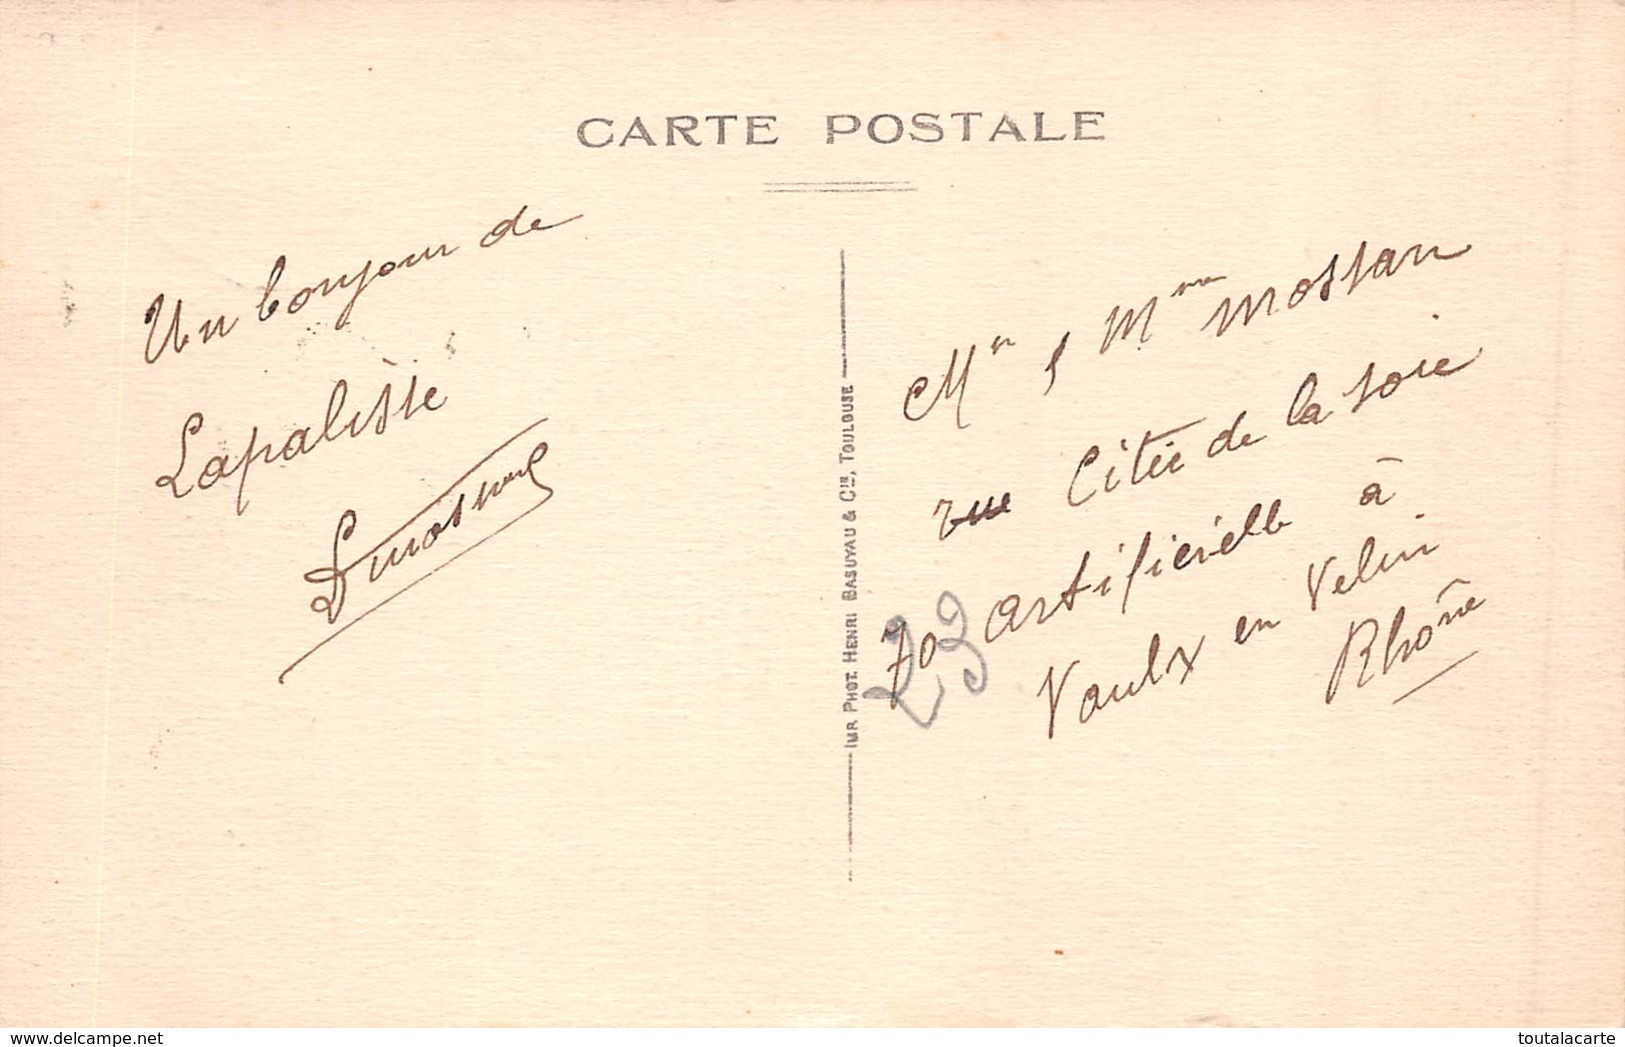 CARTE POSTALE
Un bonjour de
Lapalisse
IMP. PHOT. HENRI BASUYAU & CIE, TOULOUSE
Mr & Mme Mossan
rue Citée de la soie
70 artificielle à
Vaulx en Velin
Rhône
https://www.delcampe.net
toutalacarte